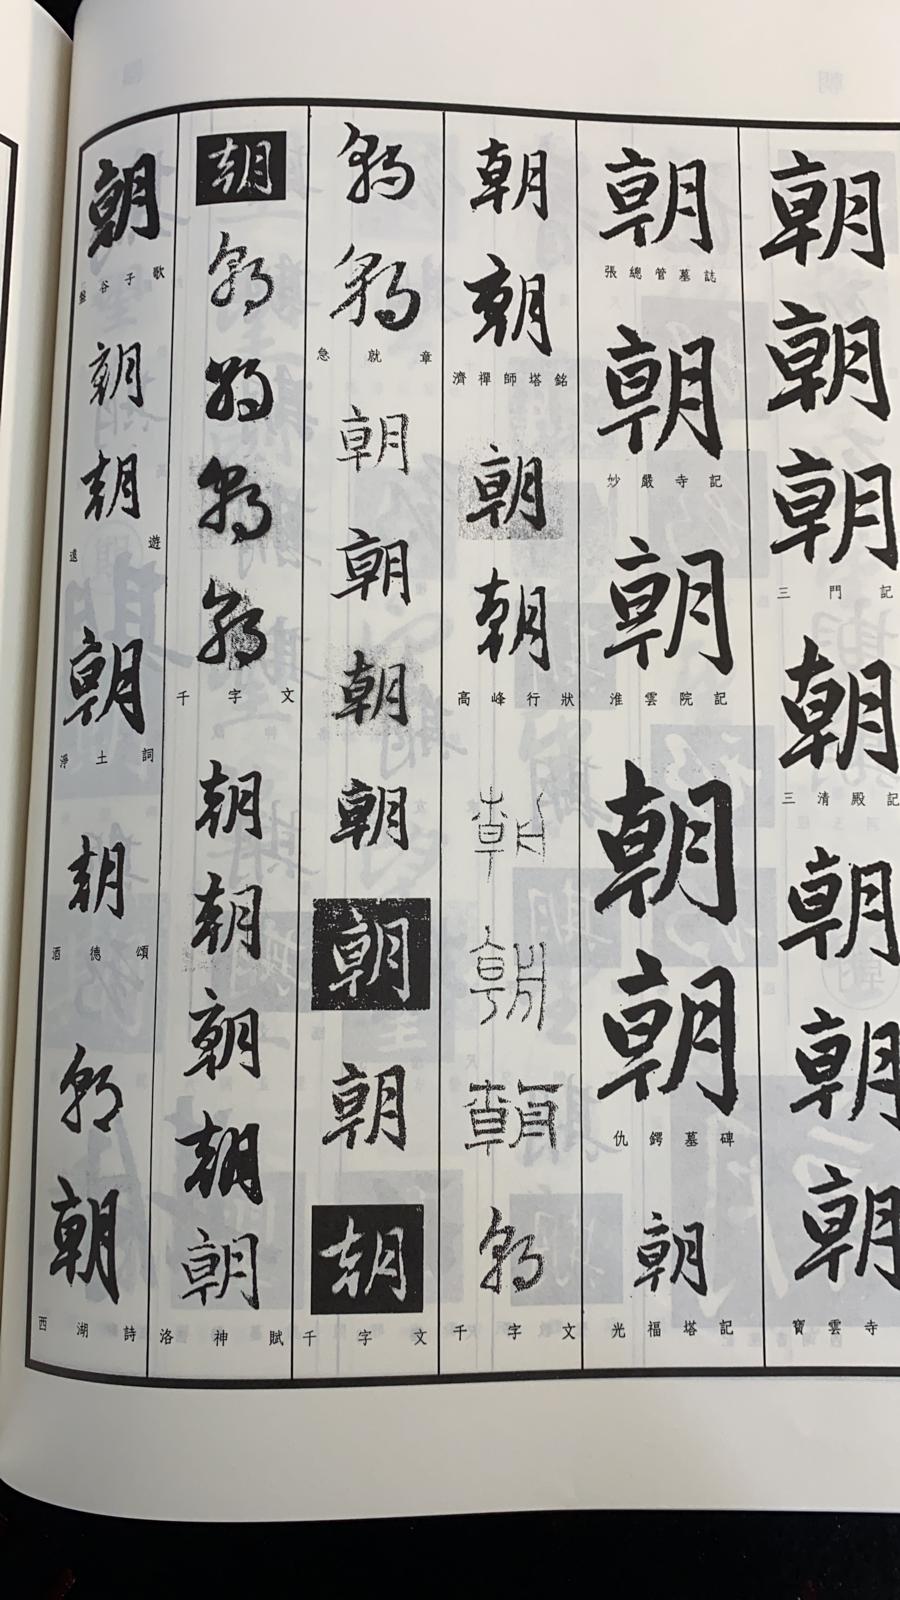 朝
朝
朝
三門記
朝
三清殿記
朝
朝
朝
寶雲寺
朝
張總管墓誌
朝
妙嚴寺記
朝
淮雲院記
朝
朝
仇鍔墓碑
朝
光福塔記
朝
朝
濟禪師塔銘
朝
朝
高峰行狀
朝
朝
朝
朝
千字文
朝
朝
急就章
朝
朝
朝
朝
朝
朝
朝
千字文
朝
朝
朝
朝
朝
千字文
朝
朝
朝
朝
朝
洛神賦
朝
盤谷子歌
朝
朝
遠遊
朝
淨土詞
朝
酒德頌
朝
朝
西湖詩